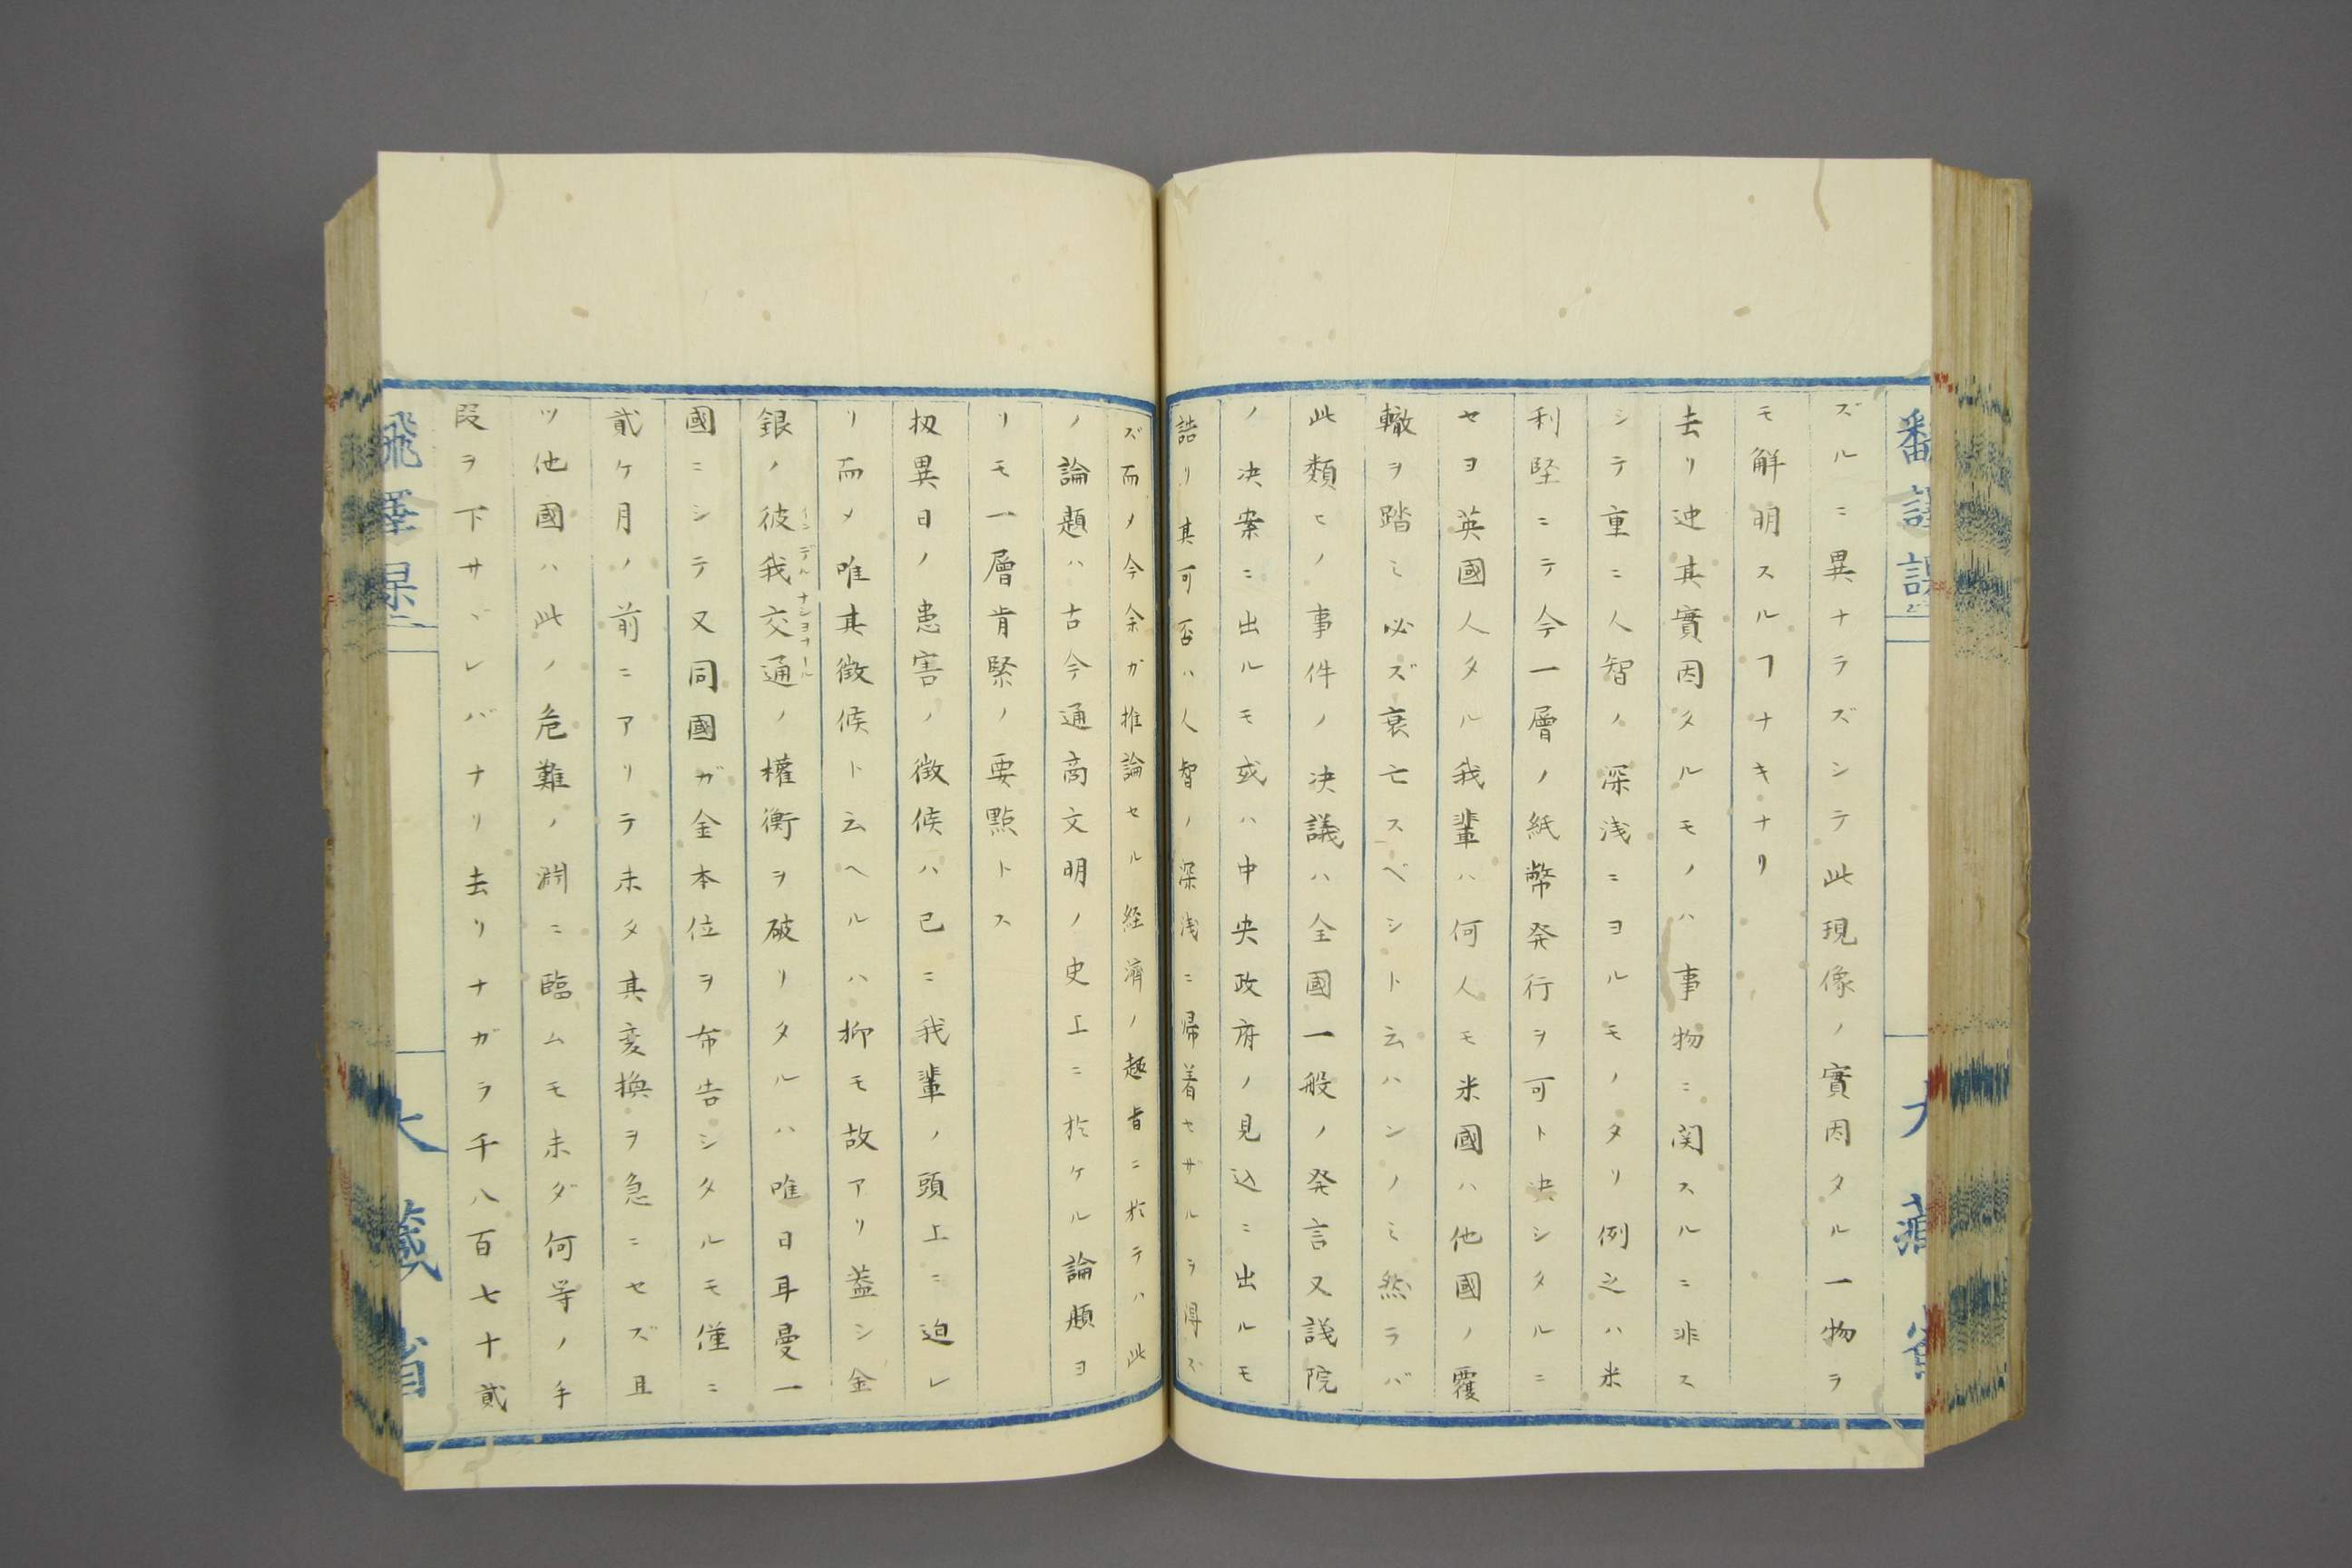 ズルニ異ナラズシテ此現像ノ實因タル一物ヲ
モ解明スルヿナキナリ
去リ迚其實因タルモノハ事物ニ関スルニ非ス
シテ重ニ人智ノ深浅ニヨルモノタリ例之ハ米
利堅ニテ今一層ノ紙幣発行ヲ可ト决シタルニ
セヨ英國人タル我輩ハ何人モ米國ハ他國ノ覆
轍ヲ踏ミ必ズ衰亡スベシト云ハンノミ然ラバ
此類ヒノ事件ノ决議ハ全國一般ノ発言又議院
ノ决案ニ出ルモ或ハ中央政府ノ見込ニ出ルモ
詰リ其可否ハ人智ノ深浅ニ帰着セザルヲ得ズ
ズ而メ今余ガ推論セル経濟ノ趣旨ニ於テハ此
ノ論題ハ古今通商文明ノ史上ニ於ケル論題ヨ
リモ一層肯緊ノ要點トス
扨異日ノ患害ノ徴候ハ已ニ我輩ノ頭上ニ迫レ
リ而メ唯其徴候ト云ヘルハ抑モ故アリ蓋シ金
銀ノ彼我交通ノ權衡ヲ破リタルハ唯日耳曼一
インデルナシヨナール
國ニシテ又同國ガ金本位ヲ布告シタルモ僅ニ
貳ケ月ノ前ニアリテ未タ其変換ヲ急ニセズ且
ツ他國ハ此ノ危難ノ淵ニ臨ムモ未ダ何等ノ手
段ヲ下サヾレバナリ去リナガラ千八百七十貳
大藏省